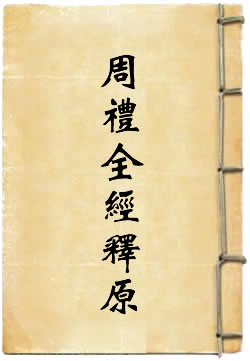 周禮全經釋原